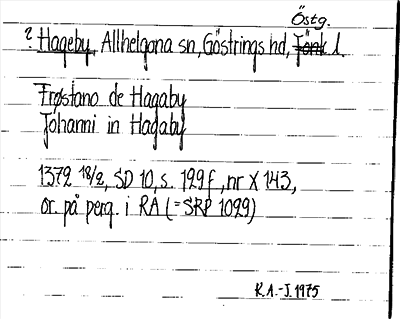 Östg.
? Hageby, Allhelgona sn, Göstrings hd, Jönk l.
Frøstano de Hagaby
Johanni in Hagaby
1372 18/2, SD 10, s. 129 f, nr X 143,
or. på perg. i RA (=SRP 1029)
R.A.-J. 1975